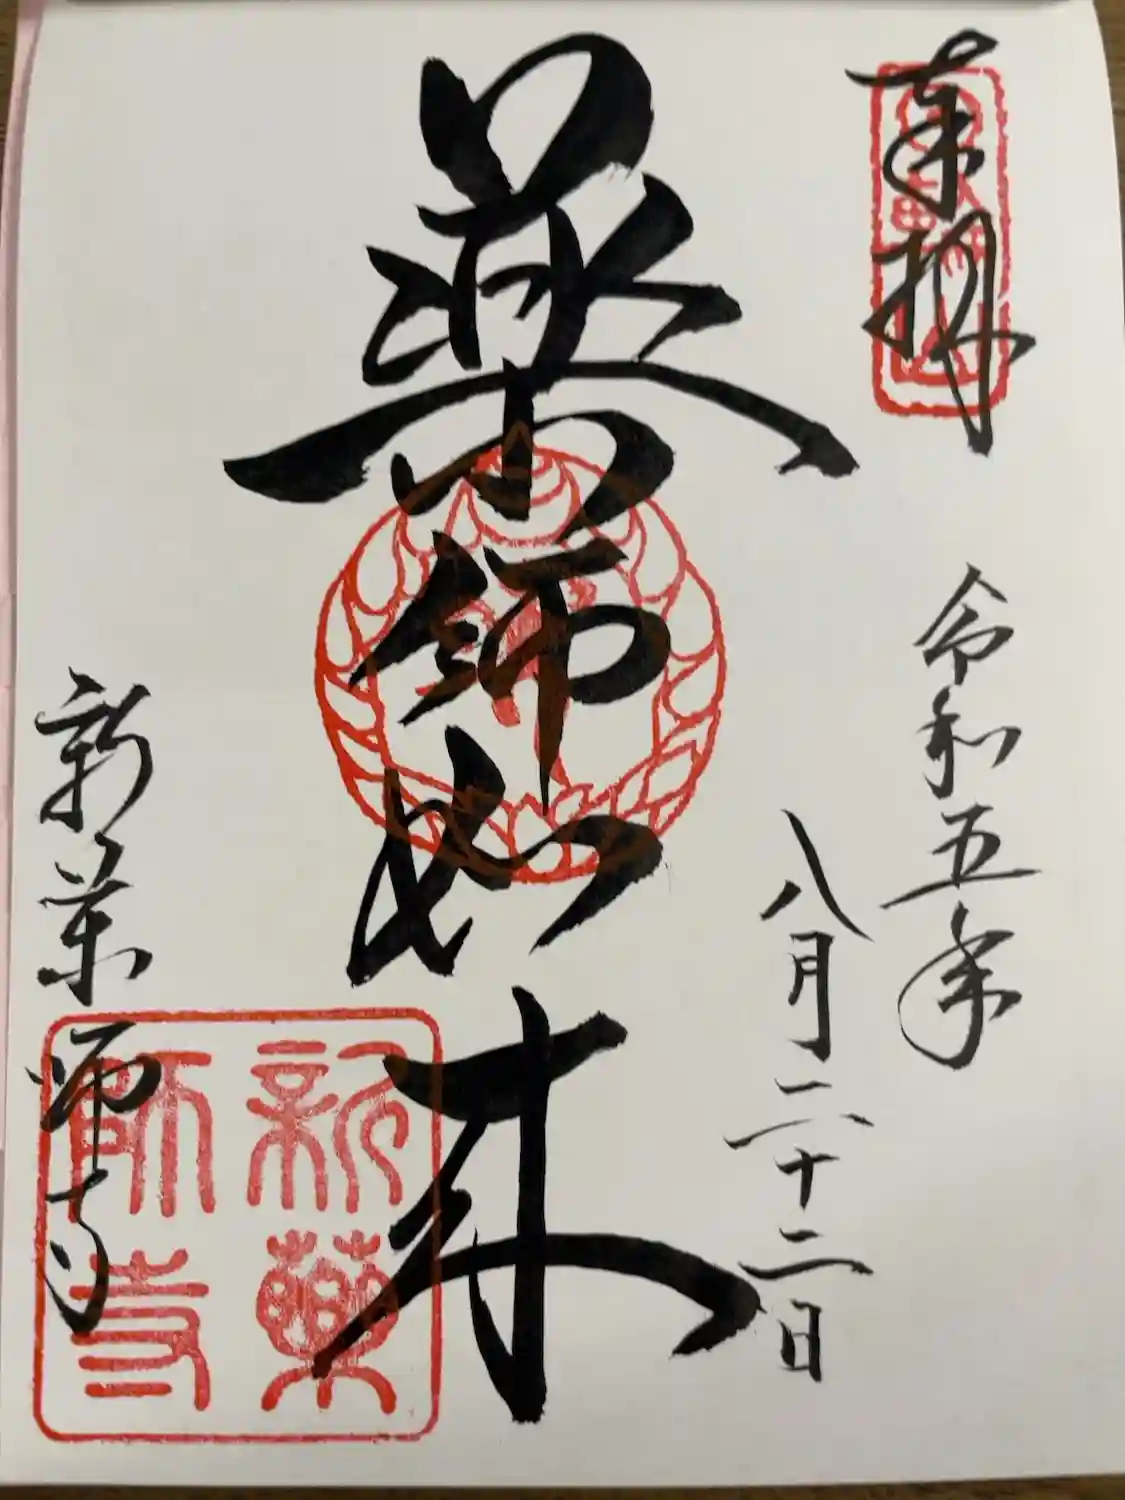 奉拝
令和五年
八月二十二日
薬師如来
新薬師寺
新薬師寺